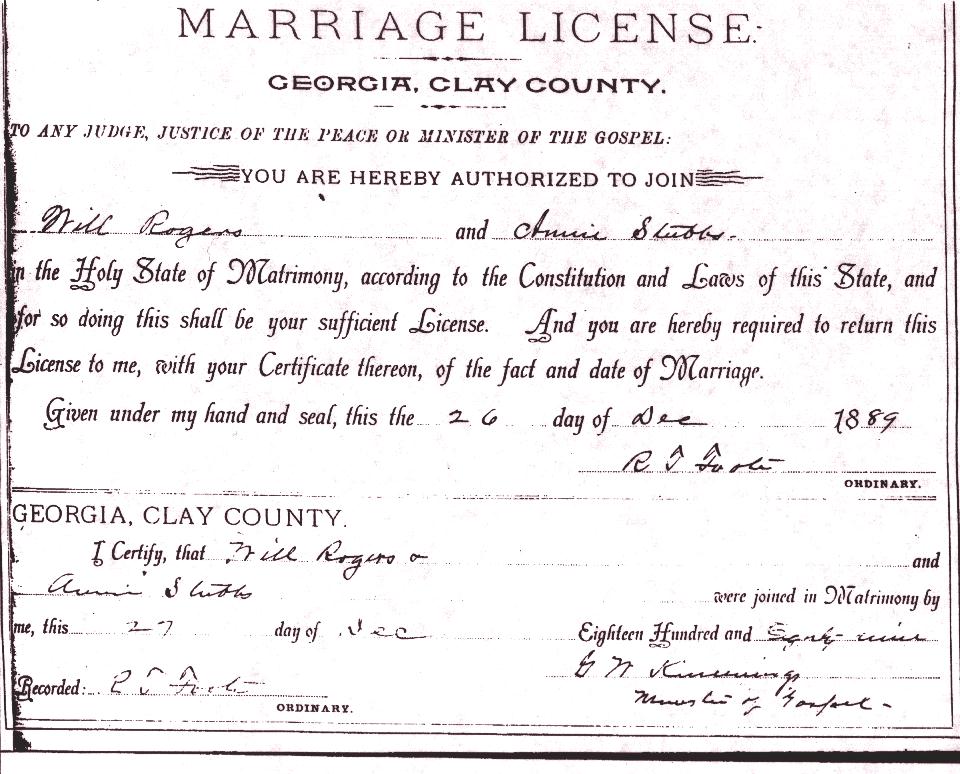 MARRIAGE LICENSE.
GEORGIA, CLAY COUNTY.
TO ANY JUDGE, JUSTICE OF THE PEACE OR MINISTER OF THE GOSPEL:
YOU ARE HEREBY AUTHORIZED TO JOIN
Will Rogers and Annie Stubbs.
in the Holy State of Matrimony, according to the Constitution and Laws of this State, and
for so doing this shall be your sufficient License. And you are hereby required to return this
License to me, with your Certificate thereon, of the fact and date of Marriage.
Given under my hand and seal, this the 26 day of Dec 1889
R T Foote
ORDINARY.
GEORGIA, CLAY COUNTY.
I Certify, that Will Rogers and
Annie Stubbs were joined in Matrimony by
me, this 27 day of Dec Eighteen Hundred and Eighty nine
G W
Recorded: R T Foote Minister of Gospel
ORDINARY.